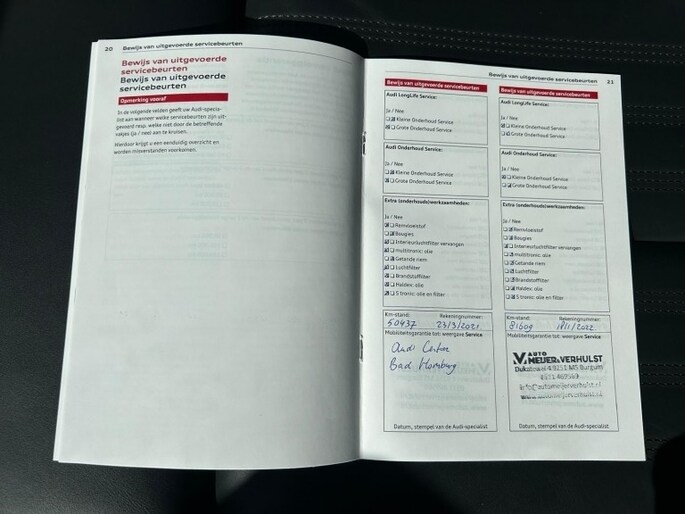 20 Bewijs van uitgevoerde servicebeurten
Bewijs van uitgevoerde
servicebeurten
Bewijs van uitgevoerde
servicebeurten
Opmerking vooraf
In de volgende velden geeft uw Audi-specia-
list aan wanneer welke servicebeurten zijn uit-
gevoerd resp. welke niet door de betreffende
vakjes (ja / nee) aan te kruisen.
Hierdoor krijgt u een eenduidig overzicht en
worden misverstanden voorkomen.
Bewijs van uitgevoerde servicebeurten 21
Bewijs van uitgevoerde servicebeurten
Audi LongLife Service:
Ja / Nee
Kleine Onderhoud Service
Grote Onderhoud Service
Audi Onderhoud Service:
Ja / Nee
Kleine Onderhoud Service
Grote Onderhoud Service
Extra (onderhouds)werkzaamheden:
Ja / Nee
Remvloeistof
Bougies
Interieurluchtfilter vervangen
multitronic: olie
Getande riem
Luchtfilter
Brandstoffilter
Haldex: olie
S tronic: olie en filter
Km-stand: Rekeningnummer:
50437 23/3/2021
Mobiliteitsgarantie tot: weergave Service
Audi Center
Bad Homburg
Datum, stempel van de Audi-specialist
Bewijs van uitgevoerde servicebeurten
Audi LongLife Service:
Ja / Nee
Kleine Onderhoud Service
Grote Onderhoud Service
Audi Onderhoud Service:
Ja / Nee
Kleine Onderhoud Service
Grote Onderhoud Service
Extra (onderhouds)werkzaamheden:
Ja / Nee
Remvloeistof
Bougies
Interieurluchtfilter vervangen
multitronic: olie
Getande riem
Luchtfilter
Brandstoffilter
Haldex: olie
S tronic: olie en filter
Km-stand: Rekeningnummer:
81609
Mobiliteitsgarantie tot: weergave Service
AUTO
MEIJER & VERHULST
9251 MS Burgum
info@automeijerverhulst.nl
www.automeijerverhulst.nl
Datum, stempel van de Audi-specialist